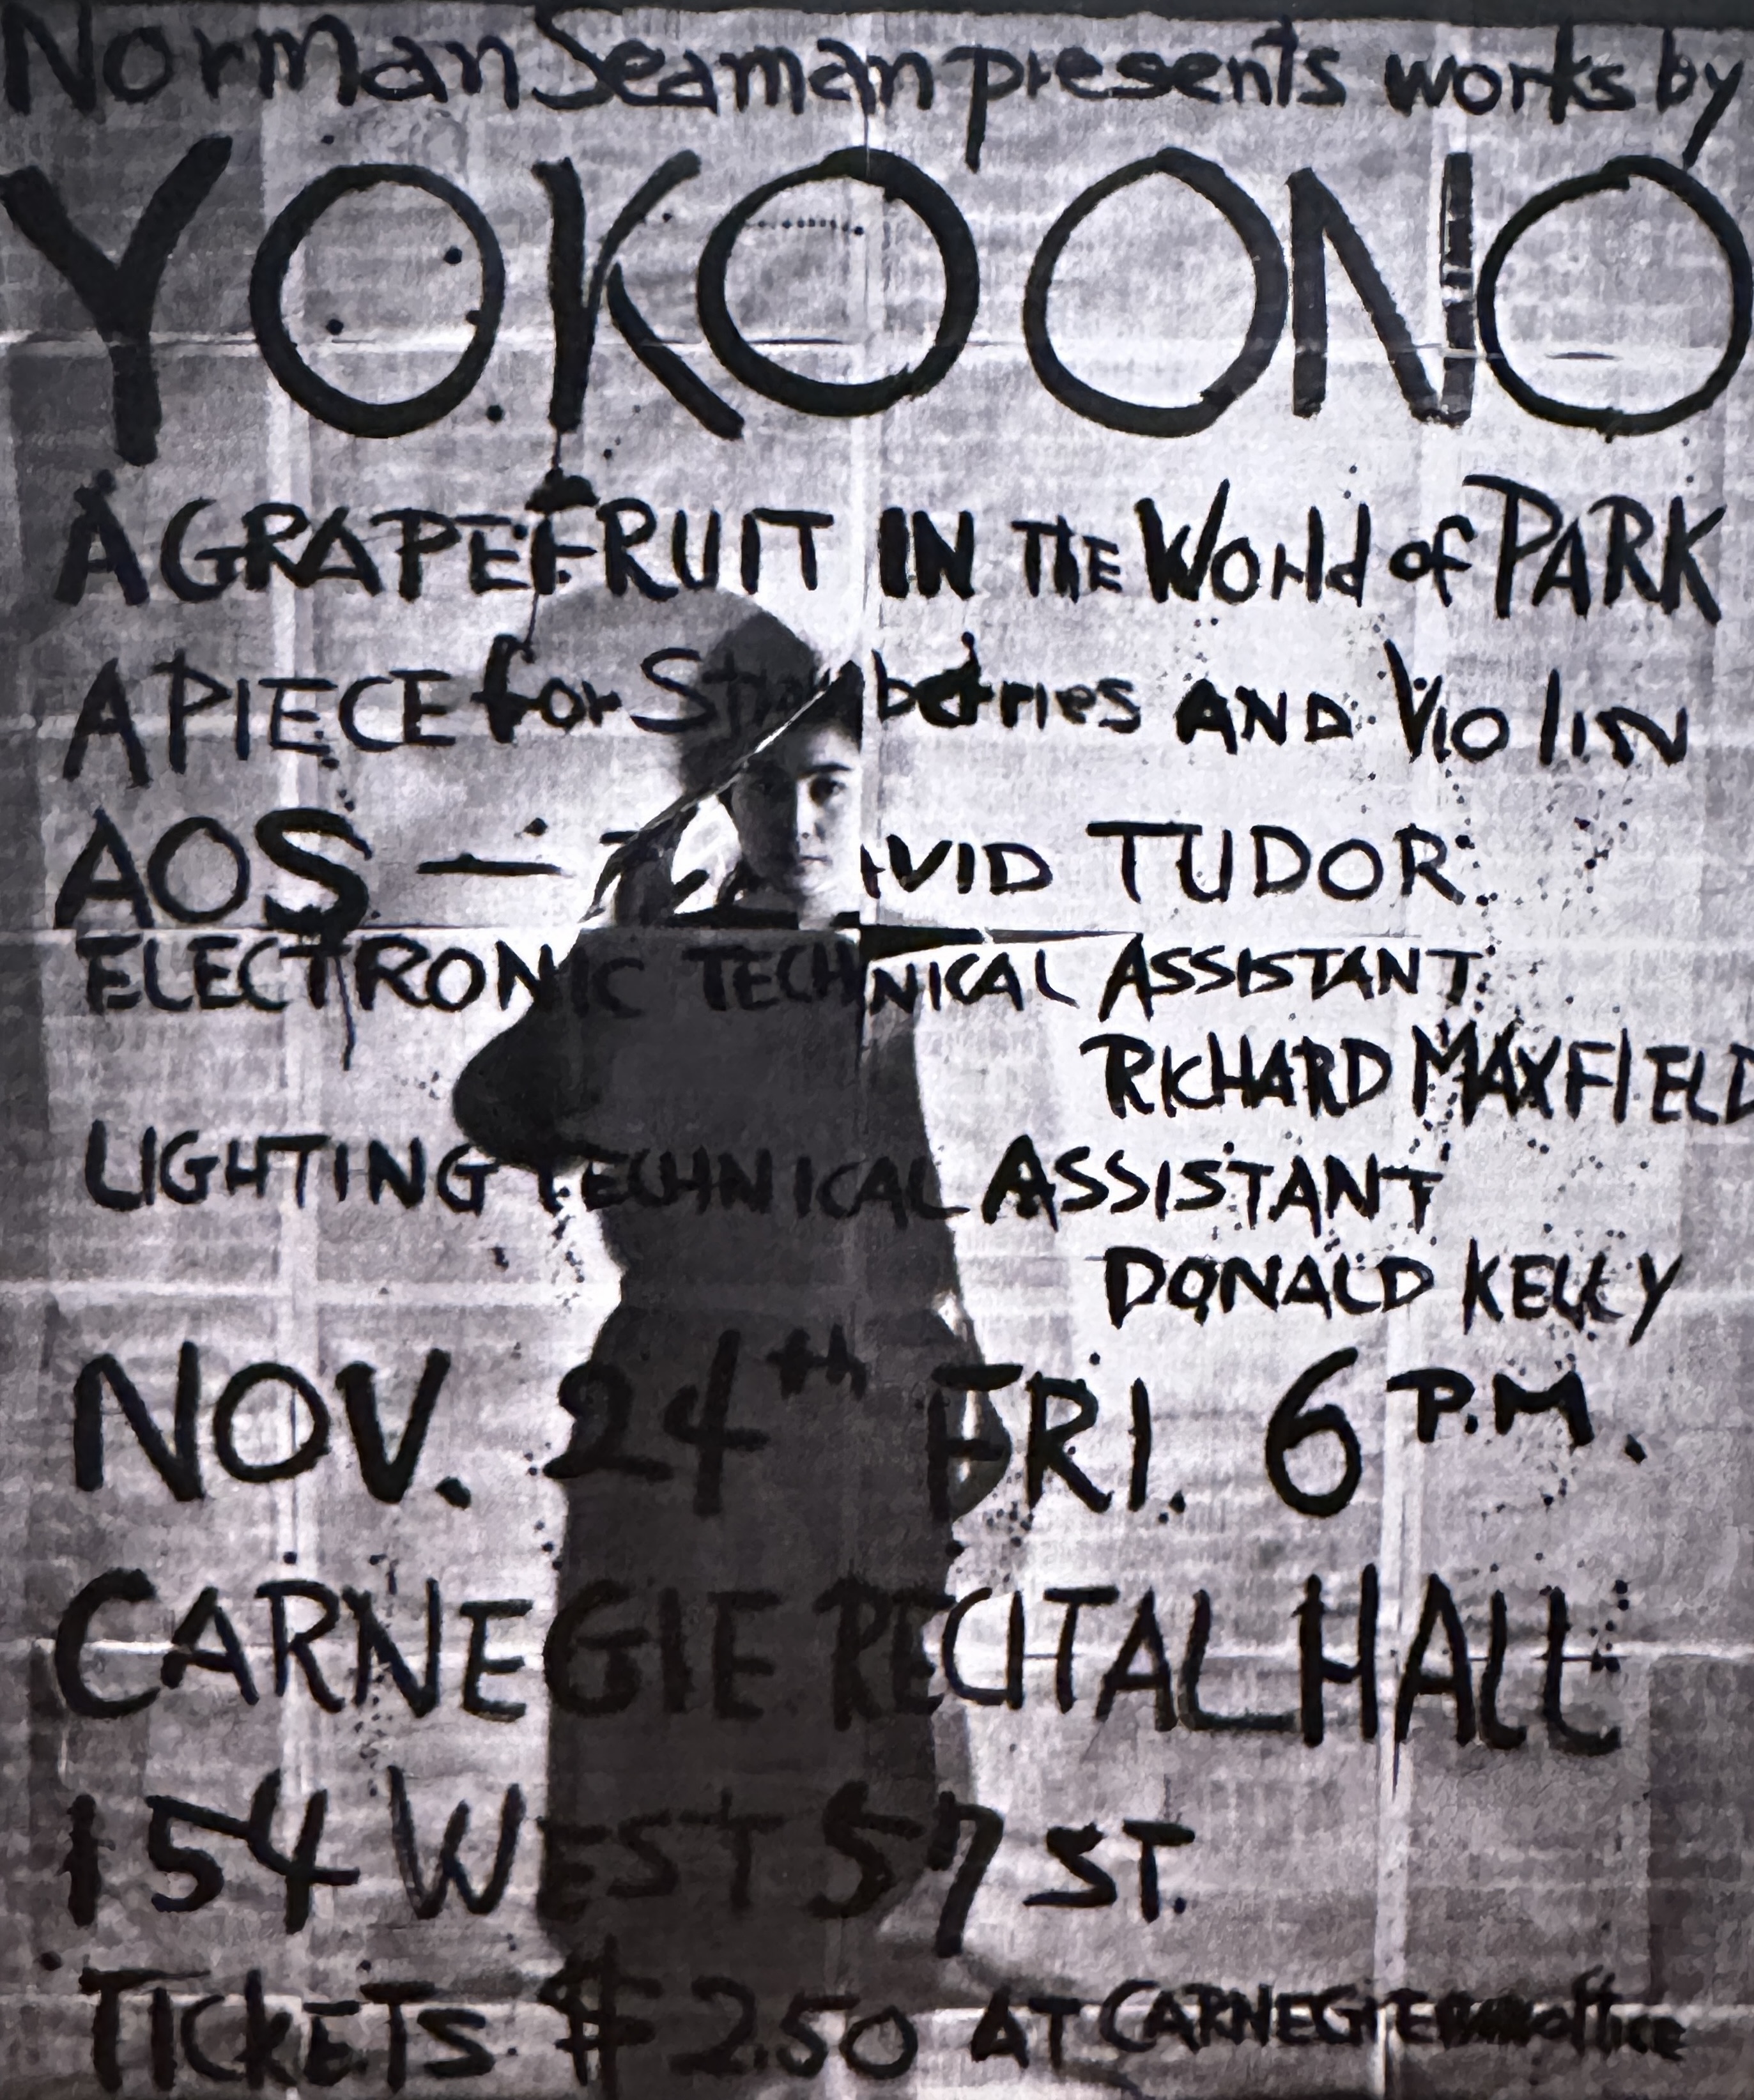 Norman Seaman presents works by
YOKO ONO
A GRAPEFRUIT IN THE World of PARK
A PIECE for Strawberries AND VIOLIN
AOS — DAVID TUDOR
ELECTRONIC TECHNICAL ASSISTANT
RICHARD MAXFIELD
LIGHTING TECHNICAL ASSISTANT
DONALD KELLY
NOV. 24th FRI. 6 P.M.
CARNEGIE RECITAL HALL
154 WEST 57 ST.
TICKETS $ 2.50 AT CARNEGIE office